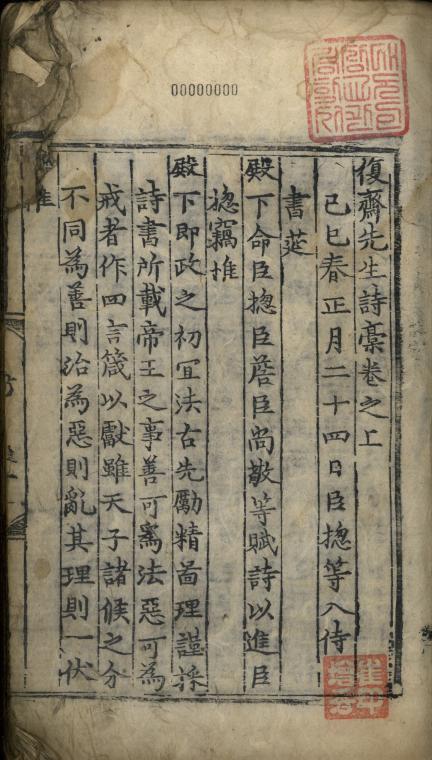 00000000
復齋先生詩藁卷之上
己巳春正月二十四日臣揔等入侍
書筵
殿下命臣揔臣𥳑臣尚敬等賦詩以進臣
揔竊惟
殿下即政之初宜法古先勵精啚理謹採
詩書所載帝王之事善可爲法惡可爲
戒者作四言箴以獻雖天子諸侯之分
不同為善則治為惡則亂其理則一伏
惟